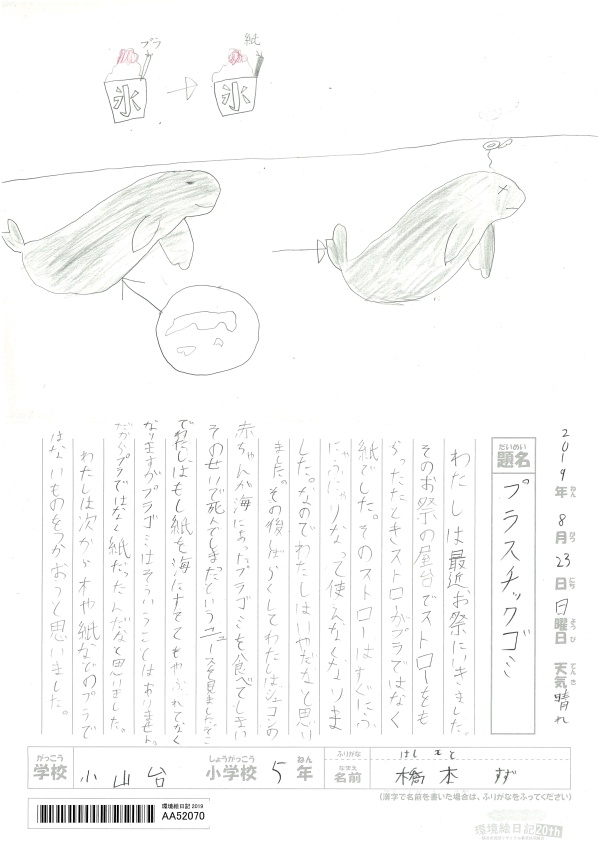 プラ
紙
氷
氷
2019年ねん 8月がつ 23日にち 日曜日ようび 天気てんき 晴れ
題名だいめい
プラスチックゴミ
わたしは最近お祭にいきました。
そのお祭の屋台でストローをも
らったときストローがプラではなく
紙でした。そのストローはすぐにふ
にゃふにゃりなって使えなくなりま
した。なのでわたしはいやだなと思い
ました。その後しばらくしてわたしはジュゴンの
赤ちゃんが海にあったプラゴミを食べてしまい
そのせいで死んでしまったというニュースを見ました。そこ
でわたしはもし紙を海にすててもやぶれてなく
なりますがプラゴミはそういうことはありません。
だからプラではなく紙だったんだなと思いました。
わたしは次から木や紙などのプラで
はないものをつかおうと思いました。
学校がっこう 小山台 小学校しょうがっこう 5年ねん
ふりがな はしもと
名前なまえ 橋本 すず
(漢字で名前を書いた場合は、ふりがなをふってください)
環境絵日記 2019
AA52070
環境絵日記20th